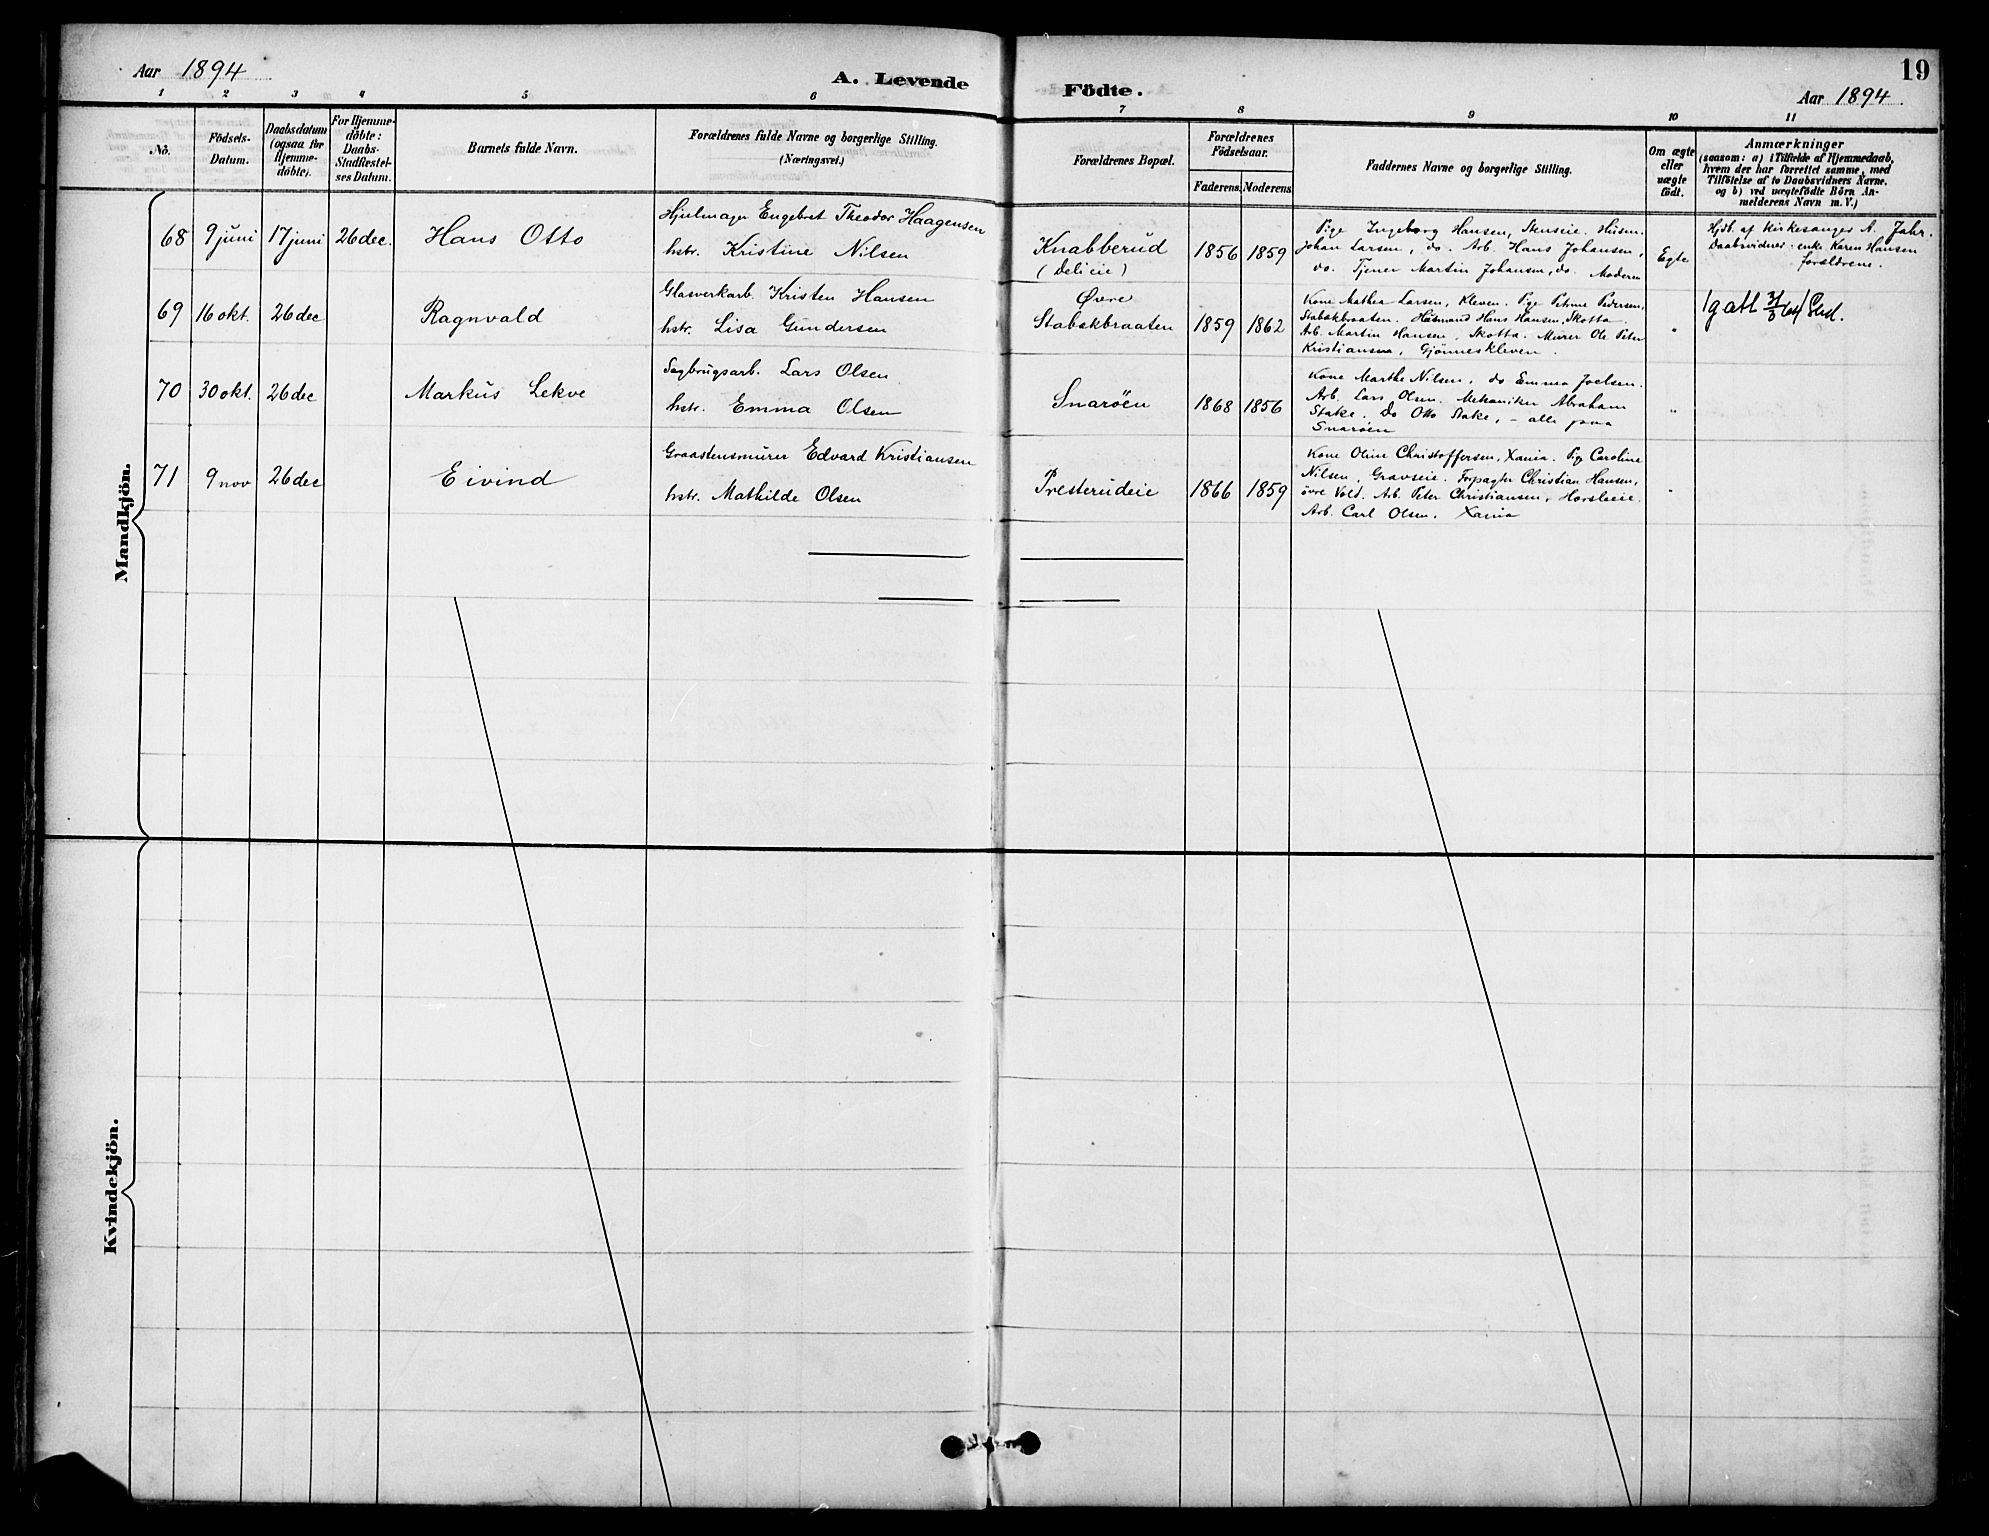 Aar 1894
A. Levende Födte.
19
Aar 1894
1 2 3 4 5 6 7 8 9 10 11
No.
Födsels-Datum.
Daabsdatum (ogsaa for Hjemme-döbte).
For Hjemme-döbte: Daabs-Stadfæstel-ses Datum.
Barnets fulde Navn.
Forældrenes fulde Navne og borgerlige Stilling.
(Næringsvei.)
Forældrenes Bopæl.
Forældrenes Födselsaar.
Faderens. Moderens.
Faddernes Navne og borgerlige Stilling.
Om ægte eller uægte födt.
Anmærkninger
(saasom: a) i Tilfælde af Hjemmedaab,
hvem der har forrettet samme, med
Tilföielse af to Daabsvidners Navne.
og b) ved uægtefödte Börn An-
melderens Navn m. V.)
Mandkjön.
68 9 juni 17 juni 26 dec. Hans Otto
Hjulmager Engebret Theodor Haagensen
hstr. Kristine Nilsen
Knabberud
(Delieie)
1856 1859
Pige Ingeborg Hansen, Stenseie. Husm.
Johan Larsen, do. Arb. Hans Johansen,
do. Tjener Martin Johansen, do. Moderen
Egte
Hjdt. af Kirkesanger A. Jahr.
Daabsvidner: enke Karen Hansen
forældrene.
69 16 okt. 26 dec Ragnvald
Glasverkarb. Kristen Hansen
hstr. Lisa Gundersen
Övre
Stabækbraaten
1859 1862
Kone Mathea Larsen, Kleven. Pige Petrine Pedersen,
Stabækbraaten. Husmand Hans Hansen, Skotta
Arb. Martin Hansen, Skotta. Murer Ole Peter
Kristiansen, Gjönneskleven.
"
70 30 okt. 26 dec Markus Lekve
Sagbrugsarb. Lars Olsen
hstr. Emma Olsen
Snaröen
1868 1856
Kone Marthe Nilsen, do Emma Joelsen.
Arb. Lars Olsen. Mekaniker Abraham
Stake. Do Otto Stake, - alle paa
Snaröen
"
71 9 nov 26 dec Eivind
Graastensmurer Edvard Kristiansen
hstr. Mathilde Olsen
Presterudeie
1866 1859
Kone Oline Christoffersen, Xania. Pig Caroline
Nilsen, Gravseie. Forpagter Christian Hansen,
övre Vold. Arb. Peter Christiansen, Horsleeie.
Arb. Carl Olsen. Xania
"
Kvindekjön.